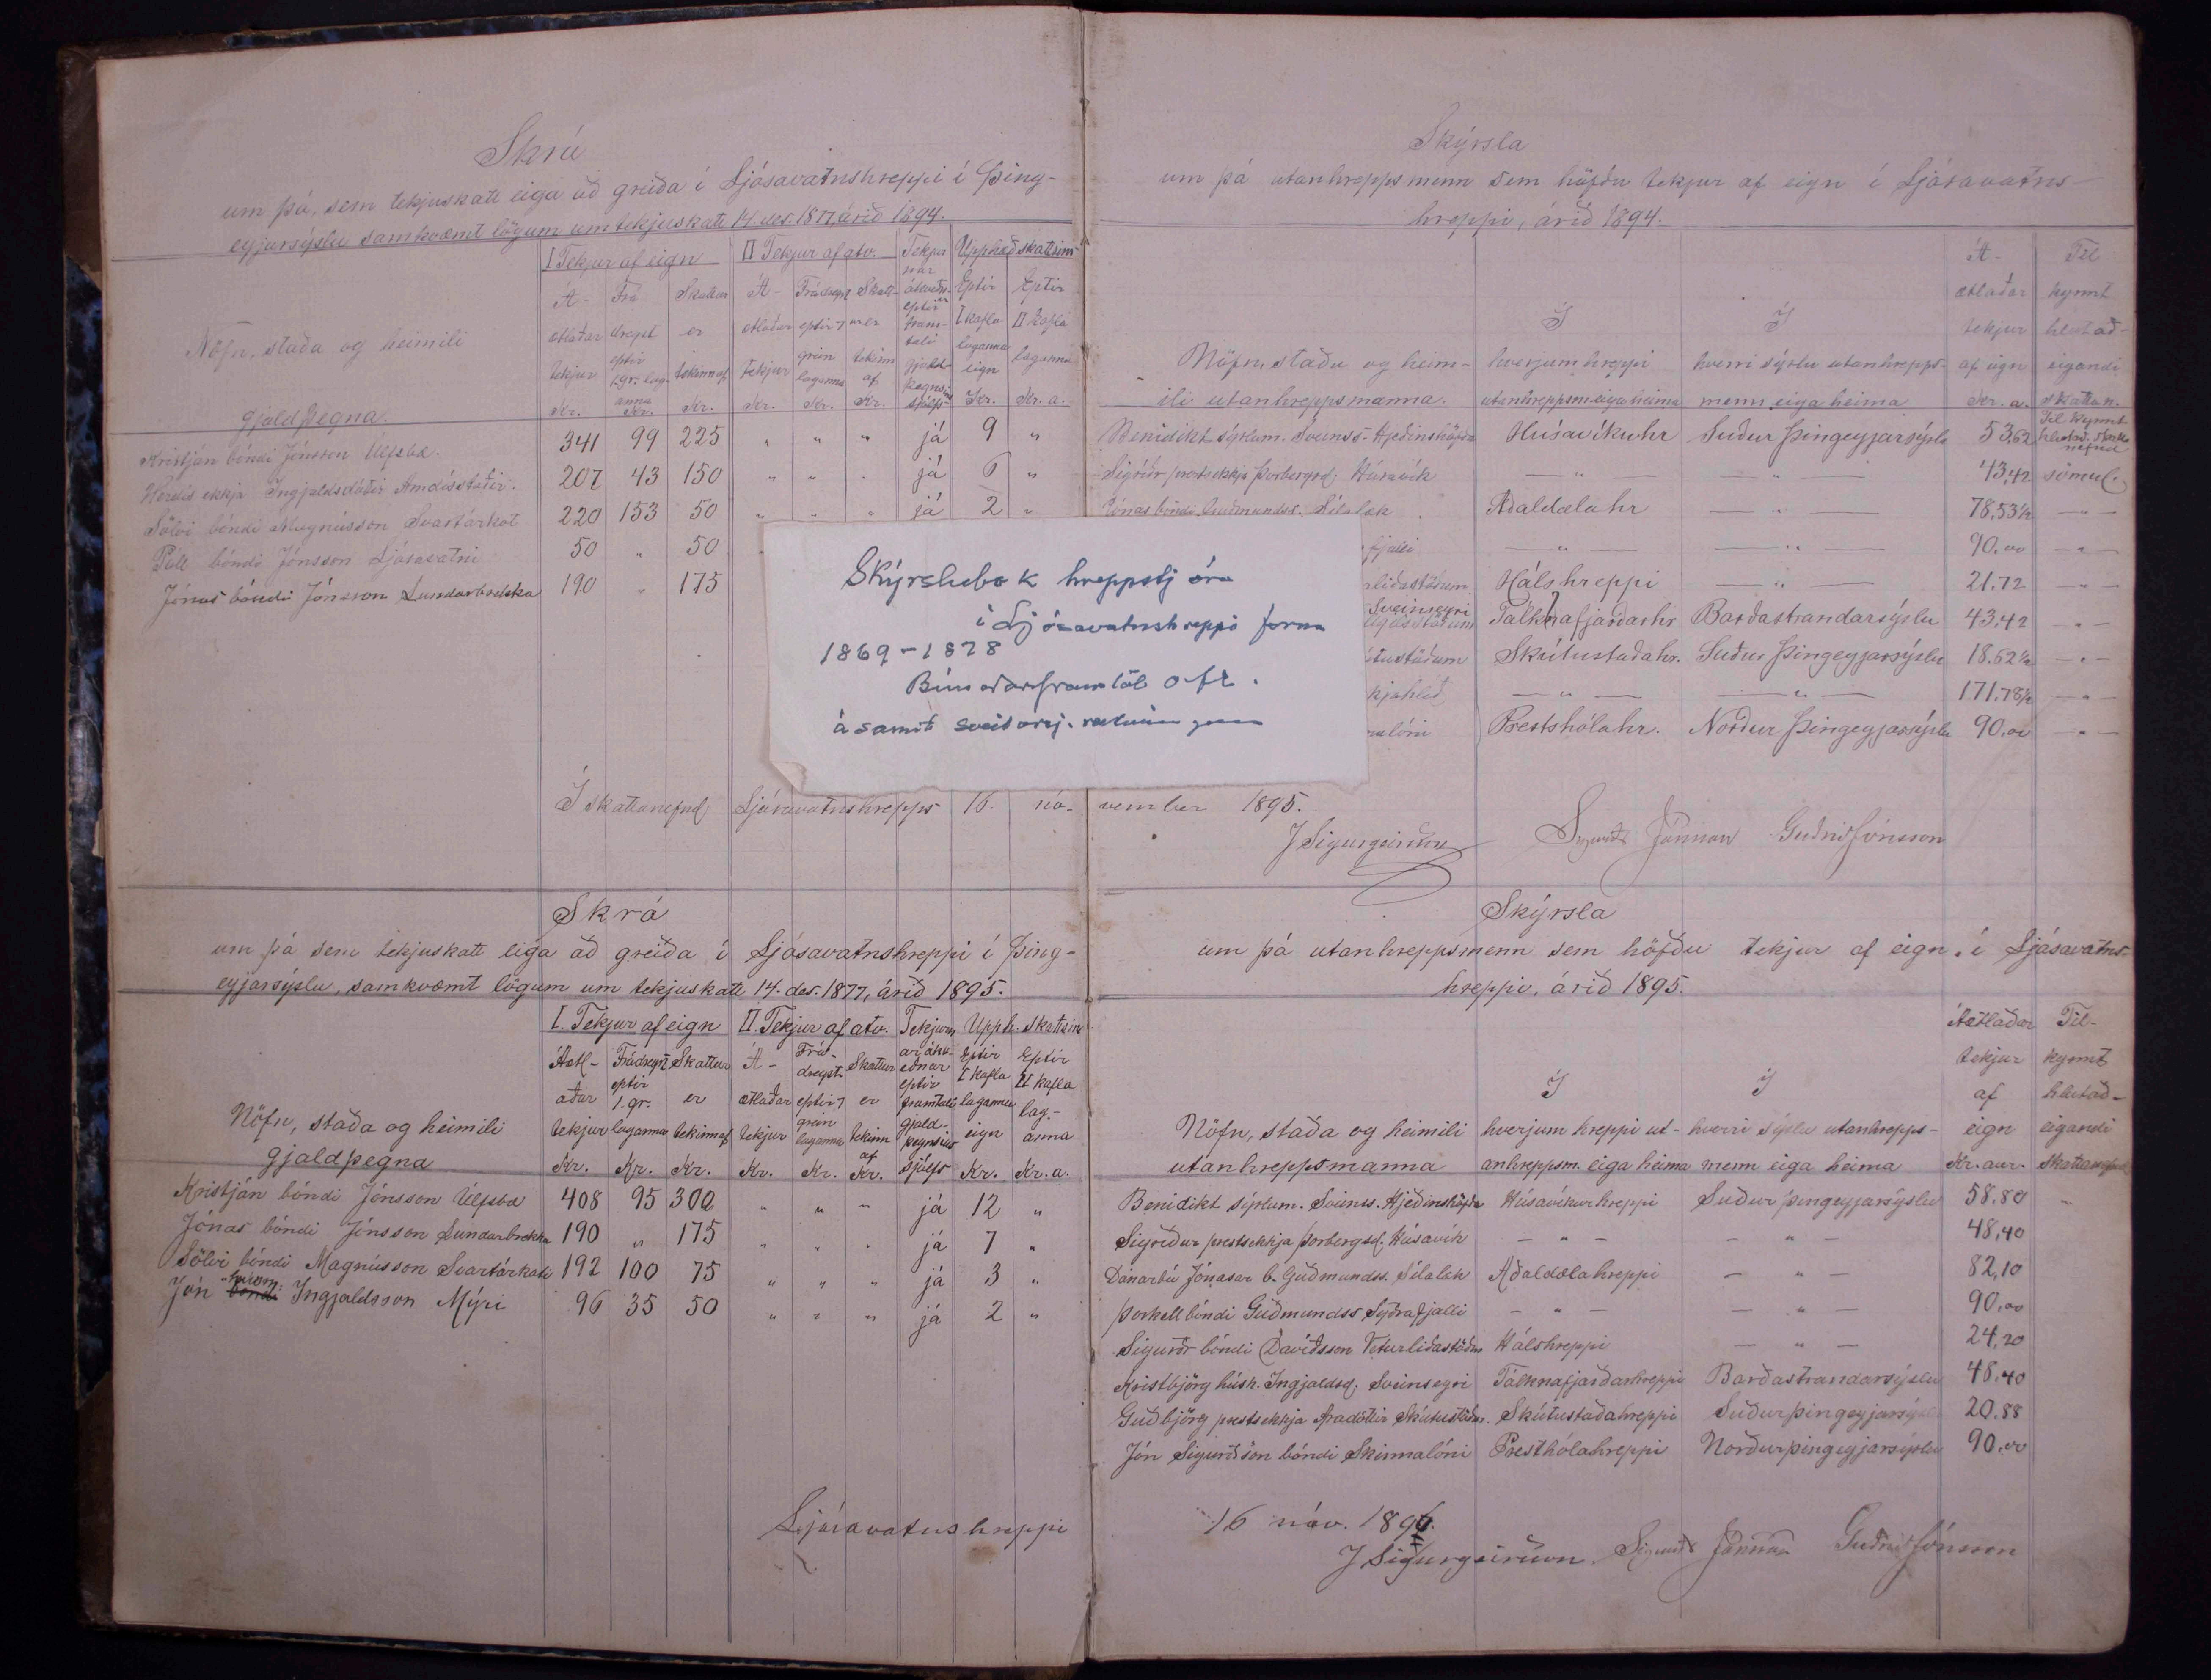 Skrá
um þá, sem tekjuskatt eiga að greiða í Ljósavatnshreppi í Þing-
eyjarsýslu samkvæmt lögum um tekjuskatt 14. des. 1877, árið 1894.
I Tekjur af eign II Tekjur af atv. Tekjur Upphæð skattsins
Nöfn, staða og heimili
gjaldþegna.
Á-
ætlaðar
tekjur
Kr.
Frá
dregst
eptir
1. gr. lag-
anna
Kr.
Skattur
er
tekinn af
Kr.
Á-
ætlaðar
tekjur
Kr.
Frádregst
eptir 7
grein
laganna
Kr.
Skatt-
ur er
tekinn
af
Kr.
Eptir
I kafla
laganna
eign
Kr.
Eptir
II kafla
laganna
Kr. a.
Kristján bóndi Jónsson Úlfsbæ. 341 99 225 " " " já 9 "
Herdís ekkja Ingjaldsdóttir 207 43 150 " " " já 6 "
Sölvi bóndi Magnússon Svartárkot 220 153 50 " " " já 2 "
Páll bóndi Jónsson Ljósavatni 50 " 50
Jónas bóndi Jónsson Lundarbrekka 190 " 175
Skýrslubók hreppstjóra
í Ljósavatnshreppi forna
1869-1878
Búnaðarframtöl o.fl.
ásamt
Í skattanefnd Ljósavatnshrepps 16. nó-
Skýrsla
um þá utanhreppsmenn sem höfðu tekjur af eign í Ljósavatns-
hreppi, árið 1894.
Nöfn, staða og heim-
ili utanhreppsmanna.
Í
hverjum hreppi
utanhreppsm. eiga heima
Í
hverri sýslu utanhrepps-
menn eiga heima
Á-
ætlaðar
tekjur
af eign
Kr. a.
Til
kynnt
hlutað-
eigandi
skattan.
Benidikt sýslum. Sveinss. Hjeðinshöfða Húsavíkurhr Suður Þingeyjarsýslu 53,52 Til kynnt
hlutað. skatta
nefnd
Sigríðr prestsekkja Þorbergsd; Húsavík — " — — " — 43,42 sömul.
Jónas bóndi Guðmundss. Sílalæk Aðaldælahr — " — 78,53½ — " —
fjalli — " — — " — 90,00 — " —
liðastöðum Hálshreppi — " — 21.72 — " —
Sveinseyri Tálknafjarðarhr Barðastrandarsýslu 43,42 — " —
tustöðum Skútustaðahr. Suður Þingeyjarsýslu 18.62½ — " —
kjahlíð — " — — " — 171.78½ — " —
nalóni Prestshólahr. Norður Þingeyjarsýslu 90,00 — " —
vember 1895.
J Sigurgeirsson Sigurðr Jónsson Guðni Jónsson
Skrá
um þá sem tekjuskatt eiga að greiða í Ljósavatnshreppi í Þing-
eyjarsýslu, samkvæmt lögum um tekjuskatt 14. des. 1877, árið 1895.
I. Tekjur af eign II. Tekjur af atv. Tekjurn Upph. skattsins
Nöfn, staða og heimili
gjaldþegna
Áætl-
aðar
tekjur
Kr.
Frádregst
eptir
1. gr.
laganna
Kr.
Skattur
er
tekinn af
Kr.
Á-
ætlaðar
tekjur
Kr.
Frá-
dregst.
eptir 7
grein
laganna
Kr.
Skattur
er
tekinn
af
Kr.
ar ákv-
eðnar
eptir
framtali
gjald-
þegnsins
sjálfs
Eptir
I kafla
laganna
eign
Kr.
Eptir
II kafla
lag-
anna
Kr. a.
Kristján bóndi Jónsson Úlfsbæ 408 95 300 " " " já 12 "
Jónas bóndi Jónsson Lundarbrekka 190 " 175 " " " já 7 "
Sölvi bóndi Magnússon Svartárkoti 192 100 75 " " " já 3 "
Jón bóndi Ingjaldsson Mýri 96 35 50 " " " já 2 "
Ljósavatnshreppi
Skýrsla
um þá utanhreppsmenn sem höfðu tekjur af eign í Ljósavatns-
hreppi, árið 1895.
Nöfn, staða og heimili
utanhreppsmanna
Í
hverjum hreppi ut-
anhreppsm. eiga heima
Í
hverri sýslu utanhrepps-
menn eiga heima
Áætlaðar
tekjur
af
eign
Kr. aur.
Til-
kynnt
hlutað-
eigandi
skattanefnd
Benidikt sýslum. Sveinss. Hjeðinshöfða Húsavíkurhreppi Suður þingeyjarsýslu 58.80 "
Sigríður prestsekkja Þorbergsd; Húsavík — " — — " — 48,40
Dánarbú Jónasar b. Guðmundss. Sílalæk Aðaldælahreppi — " — 82,10
Þorkell bóndi Guðmundss Syðrafjalli — " — — " — 90,00
Sigurðr bóndi Davíðsson Veturliðastöðum Hálshreppi — " — 24,20
Kristbjörg húsk. Ingjaldsd; Sveinseyri Tálknafjarðarhreppi Barðastrandarsýslu 48,40
Guðbjörg prestsekkja Aradóttir Skútustöðum. Skútustaðahreppi Suðurþingeyjarsýslu 20.88
Jón Sigurðsson bóndi Skinnalóni Presthólahreppi Norðurþingeyjarsýslu 90,00
16 nóv. 1896.
J Sigurgeirsson. Sigurðr Jónsson Guðni Jónsson